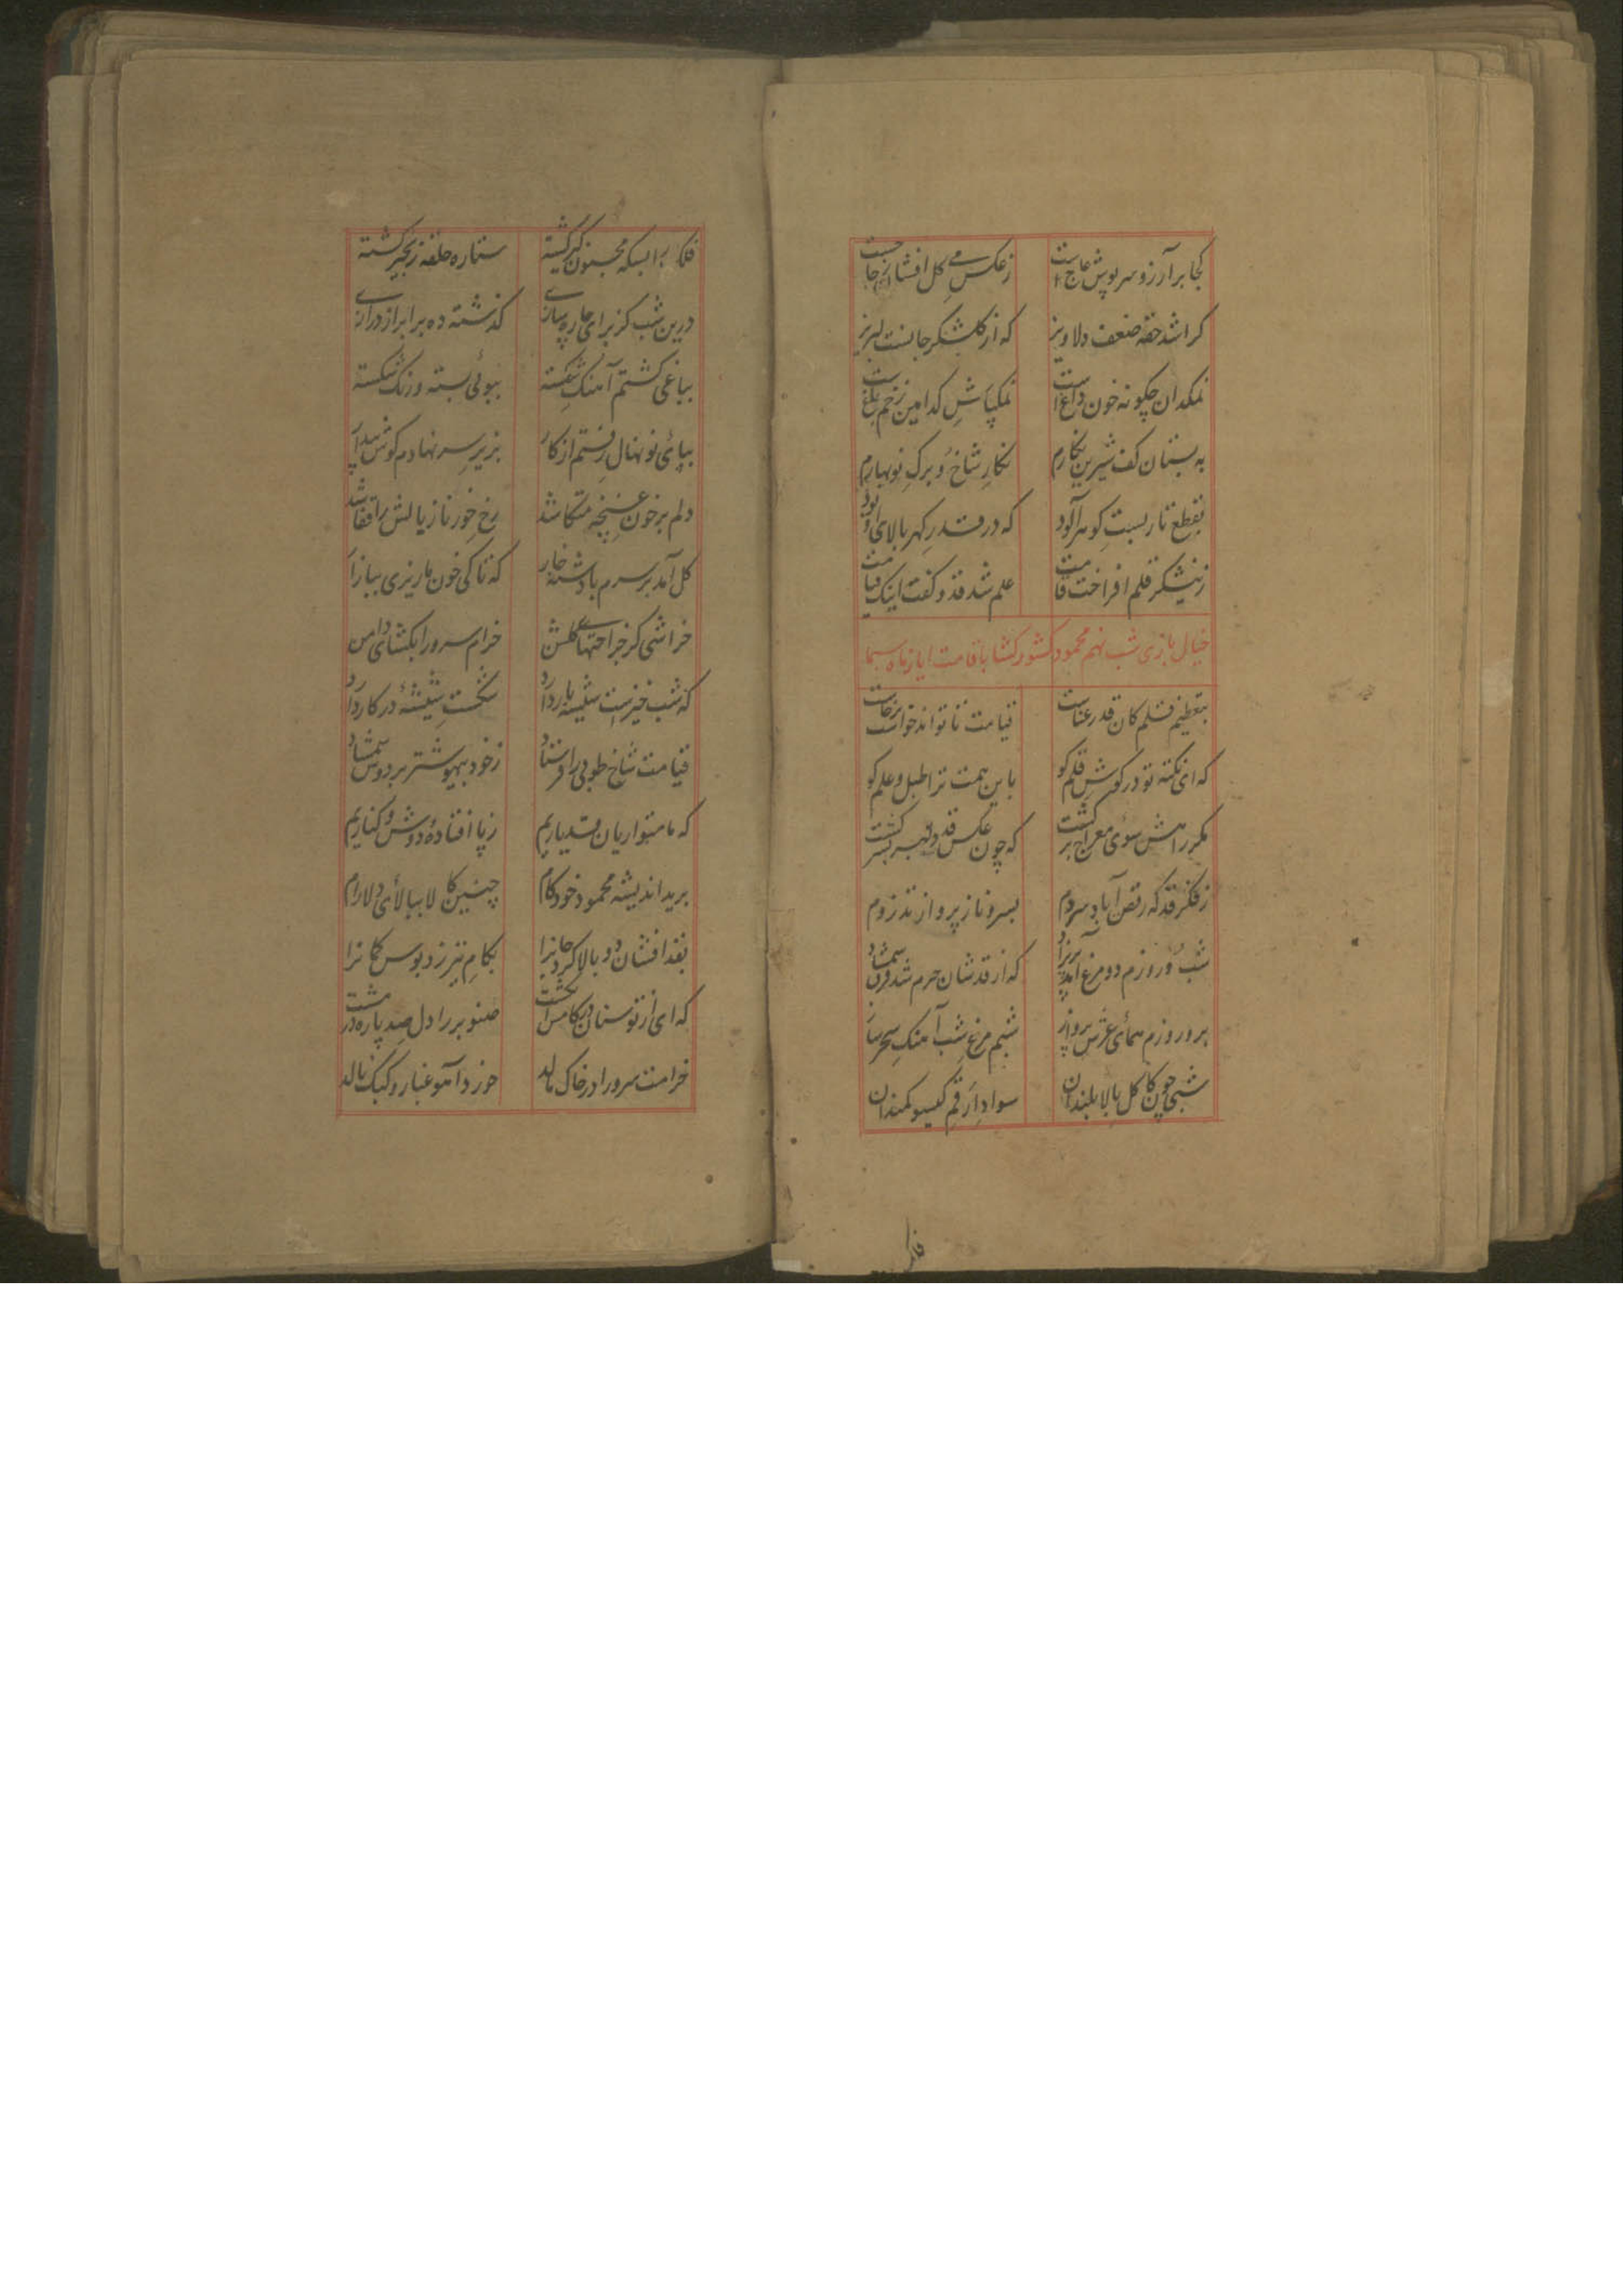 کجا بر آرزو سرپوش عاج است زعکس می گل افشان
کرا شد حقه ضعف دلاویز که از گلشکر جانست لبریز
نمکدان چگونه خون داغ است نمکپاش کدامین زخم
به بستان کف شیرین نگارم نگار شاخ و برگ نوبهارم
بقطع تار بست گوهرآلود که در قدر گهر بالای او بود
زنیشکر قلم افراخت قامت علم شد قد و گفت اینک قیامت
خیال بازی شب نهم محمود کشورکشا با قامت ایاز ماه سیما
بتعظیم قلم کان قد رعناست قیامت تا تواند خواست برخاست
که ای نکته تو در گوش قلم گو باین همت ترا طبل و علم کو
مکرر اهش سوی معراج برگشت که چون عکس قد دلبر بسر گشت
ز فکر قد که رقص آباد سروم بسرو ناز پرواز تذروم
شب و روزم دو مرغ آمد پریزاد که از قدشان حرم شد فرق شمشاد
بر و روزم همای عرش پرواز شبم مرغ شب آهنگ سحر ساز
شبی چون کاکل بالابلندان سواد از رقم گیسو کمندان
فلک
فلک را بسکه مجنون گیر گشته ستاره حلقه زنجیر گشته
درین شب کز برای چاره سازی گذشته ده برابر از درازی
بباغی گشتم آهنگ شکسته ببوئی بسته و رنگ شکسته
بپای نونهال رفتم از کار بزیر سر نهادم گوش
دلم بر خون غنچه متکا شد رخ خور ناز بالش را قفا شد
گل آمد بر سرم با دشنه خار که تا کی خون ما ریزی ببازار
خراشی کز جراحتهای گلشن خرام سرو را بگشای دامن
که شب خیزست شیشه باردارد شکست شیشه در کار دارد
قیامت شاخ طوبی را فرستاد ز خود بیهوشتر بر دوش شمشاد
که ما متواریان قد یاریم ز پا افتاده دوش و کناریم
برید اندیشه محمود خودکام چنین کالا ببالای دلارام
بقد افشان دو بالا کرد جانرا بکام تیر زد بوس کمانرا
که ای از تو سنان در کام انگشت صنوبر را دل صد پاره در مشت
خرامت سرو را در خاک مالد خورد آهو غبار و کبک نالد